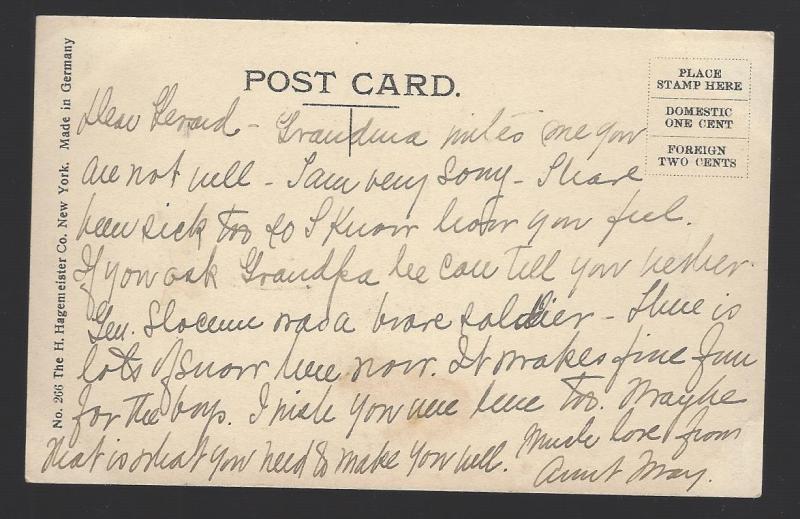 POST CARD.
PLACE
STAMP HERE
DOMESTIC
ONE CENT
FOREIGN
TWO CENTS
No. 266 The H. Hagemeister Co. New York. Made in Germany
Dear Gerard - Grandma writes me you
are not well - I am very sorry - I have
been sick too so I know how you feel.
If you ask Grandpa he can tell you whether
Gen. Slocum was a brave soldier - There is
lots of snow here now. It makes fine fun
for the boys. I wish you were here too. Maybe
that is what you need to make you well. Much love from
Aunt May.